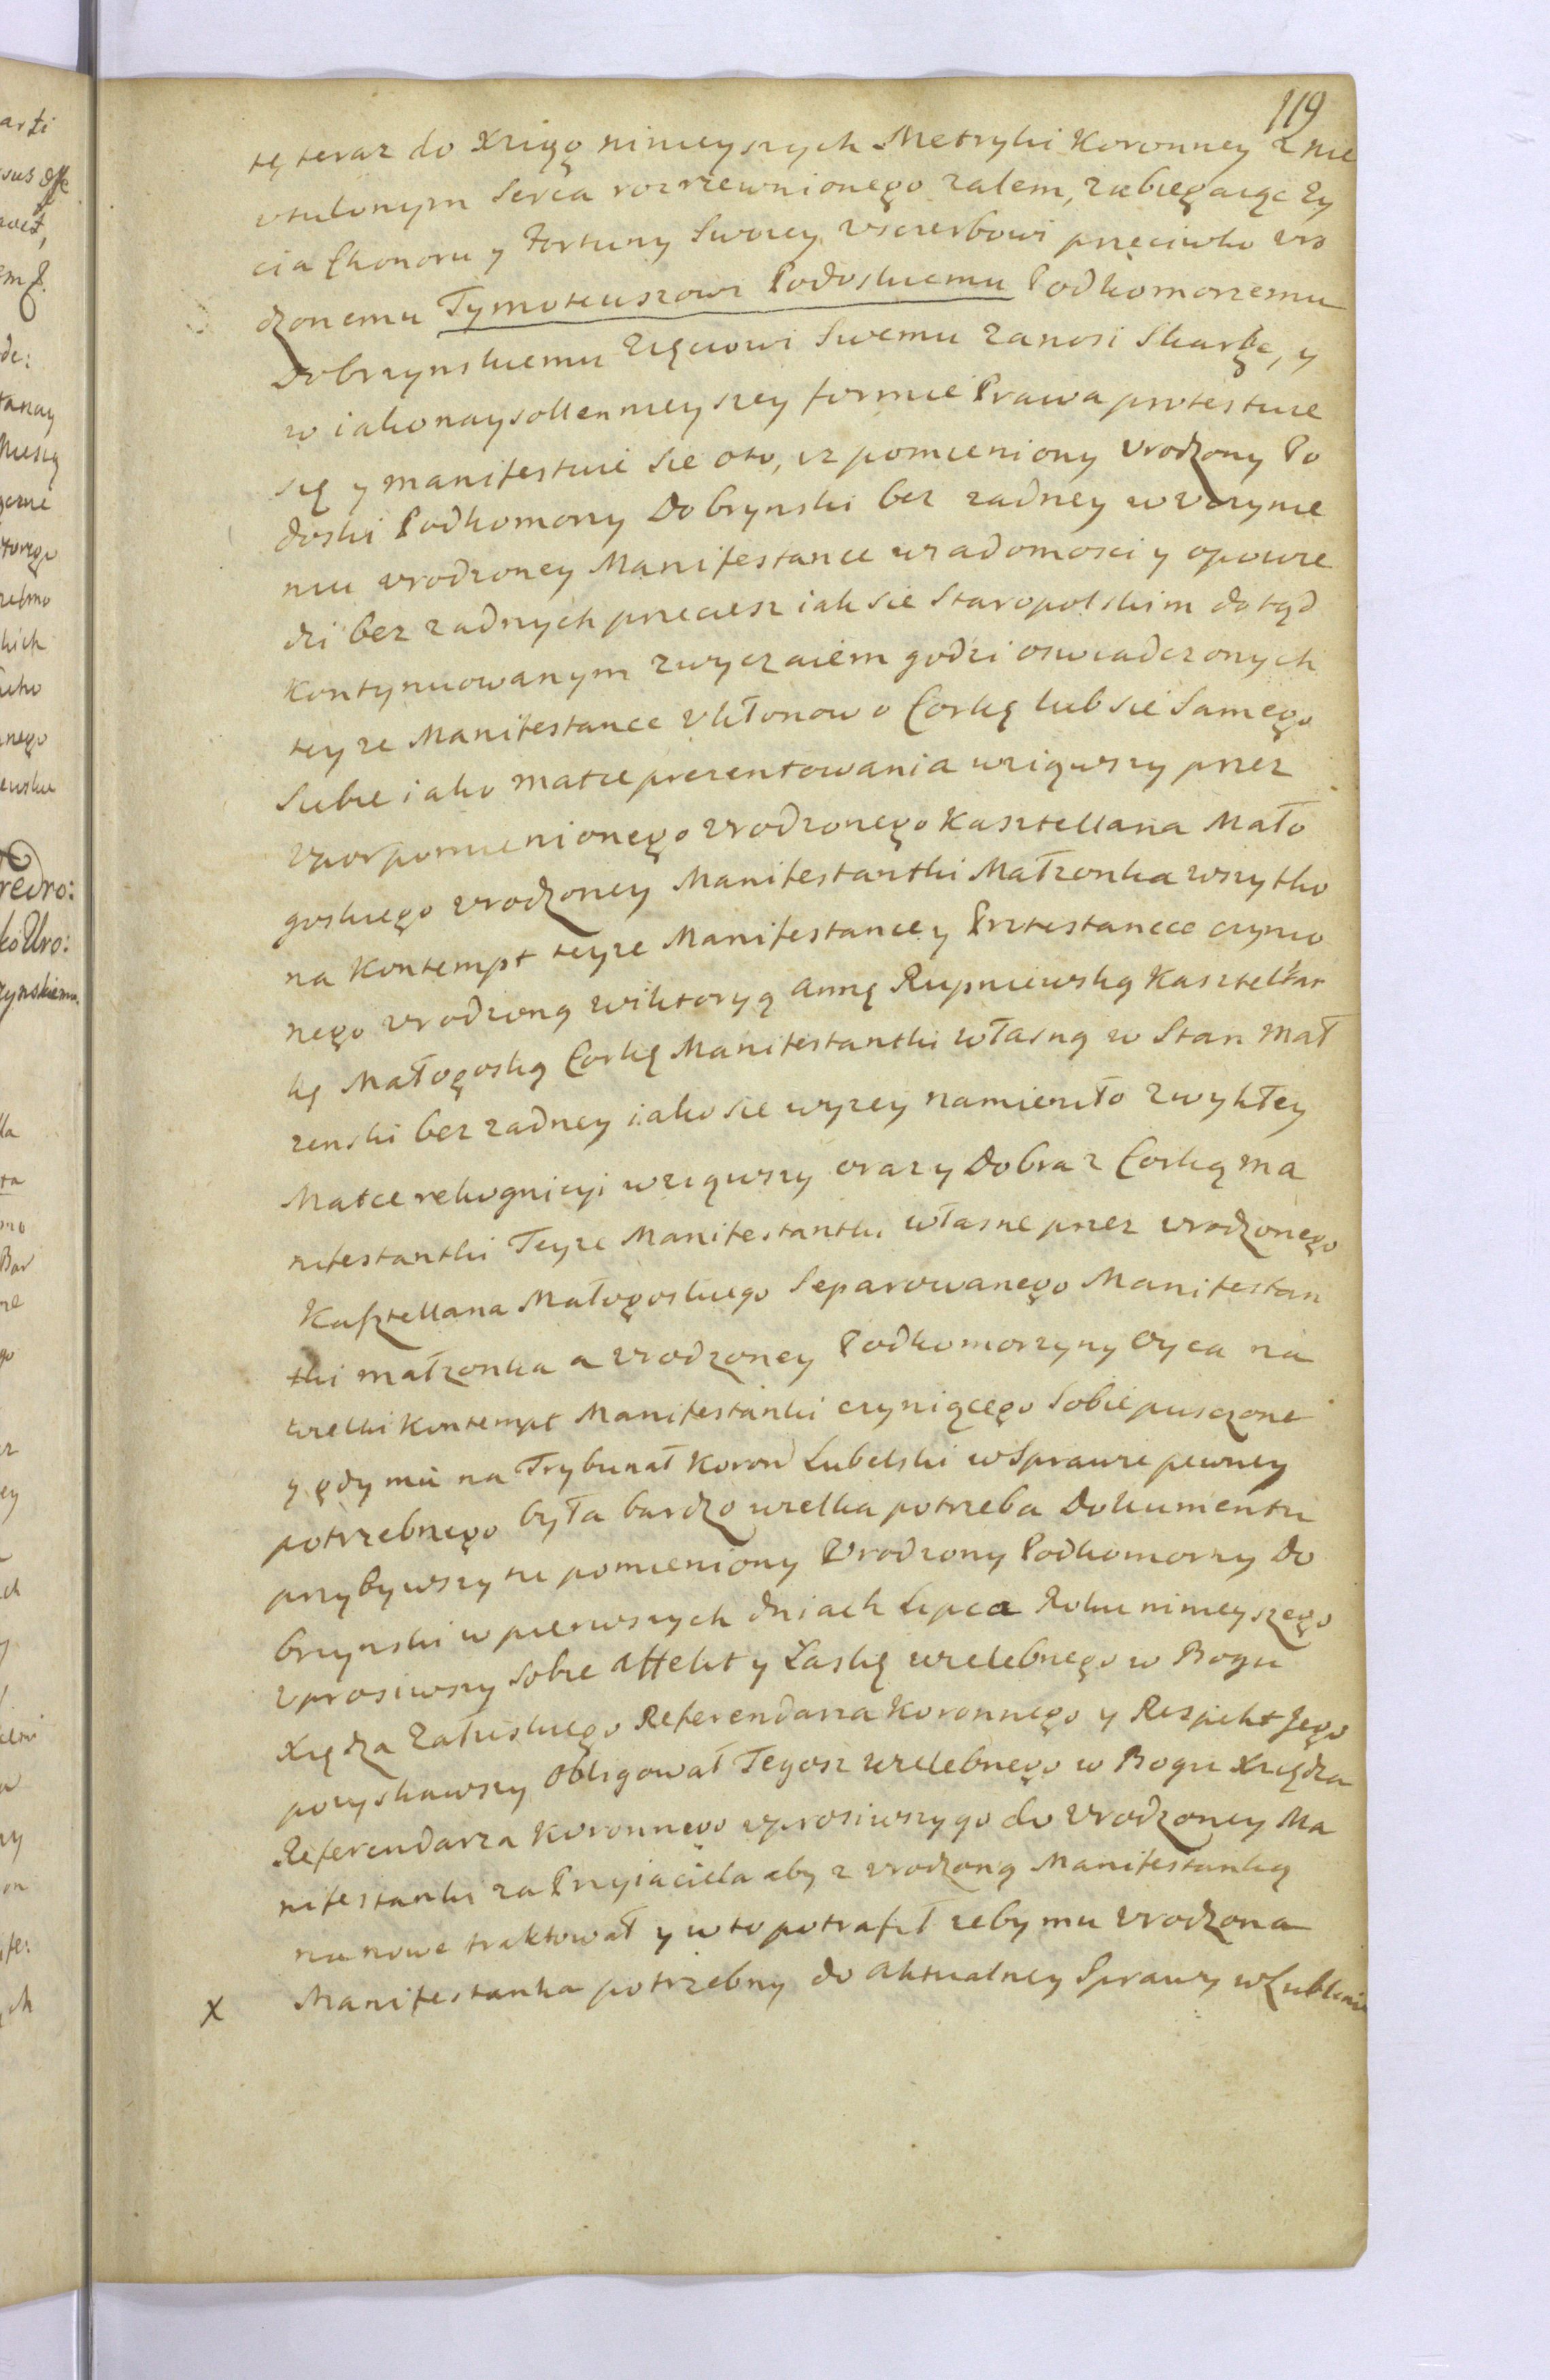 119
tę teraz do Xiąg ninieyszych Metryki Koronney z nie
vtulonym Serca rozrzewnionego zalem, zabiegaiąc zy
cia Chonoru y Fortuny Swoiey vsczerbowi przeciwko vro
dzonemu Tymoteuszowi Podoskiemu Podkomorzemu
Dobrzynskiemu Zięciowi Swemu zanosi Skargę, y
w iako naysollenneyszey formie Prawa protestuie
się y manifestuie sie oto, iz pomieniony vrodzony Po
doski Podkomorzy Dobrynski bez zadney w vczynie
niu vrodzoney Manifestance wiadomosci y opowie
dzi bez zadnych przeciesz iak sie Staropolskim dotąd
kontynuowanym zwyczaiem godzi oswiadczonych
teyze Manifestance vkłonow o Corkę lub sie Samego
Siebie iako matce prezentowania wziąwszy przez
vzwyz pomienionego vrodzonego Kasztellana Mało
goskiego vrodzoney Manifestantki Małzonka wszytko
na Kontempt teyze Manifestancey Protestancce czynio
nego vrodzoną Wiktoryą Annę Rupniewską Kasztellan
kę Małogoską Corkę Manifestantki własną w Stan Mał
zenski bez zadney iako sie wyzey namieniło zwykłey
Matce rekognicyi wziąwszy oraz y Dobra z Corką ma
nifestantki Teyze Manifestantki własne przez vrodzonego
Kasztellana Małogoskiego Separowanego Manifestan
tki małzonka a vrodzoney Podkomorzyny Oyca na
wielki Kontempt Manifestantki czyniącego Sobie pusczone
y gdy mu na Trybunał Koron Lubelski w Sprawie pewney
potrzebnego była bardzo wielka potrzeba Dokumentu
przybywszy tu pomieniony Vrodzony Podkomorzy Do
brzynski w pierwszych dniach Lipca Roku ninieyszego
vprosiwszy Sobie affekt y Łaskę wielebnego w Bogu
Xiędza Załuskiego Referendarza Koronnego y Respekt Jego
pozyskawszy Obligował Tegosz wielebnego w Bogu Xiędza
Referendarza Koronnego vprosiwszy go do Vrodzoney Ma
nifestanki za Przyiaciela aby z vrodzoną Manifestanką
na nowe traktował y w to potrafił zeby mu vrodzona
X Manifestanka potrzebny do aktualney Sprawy w Lublinie